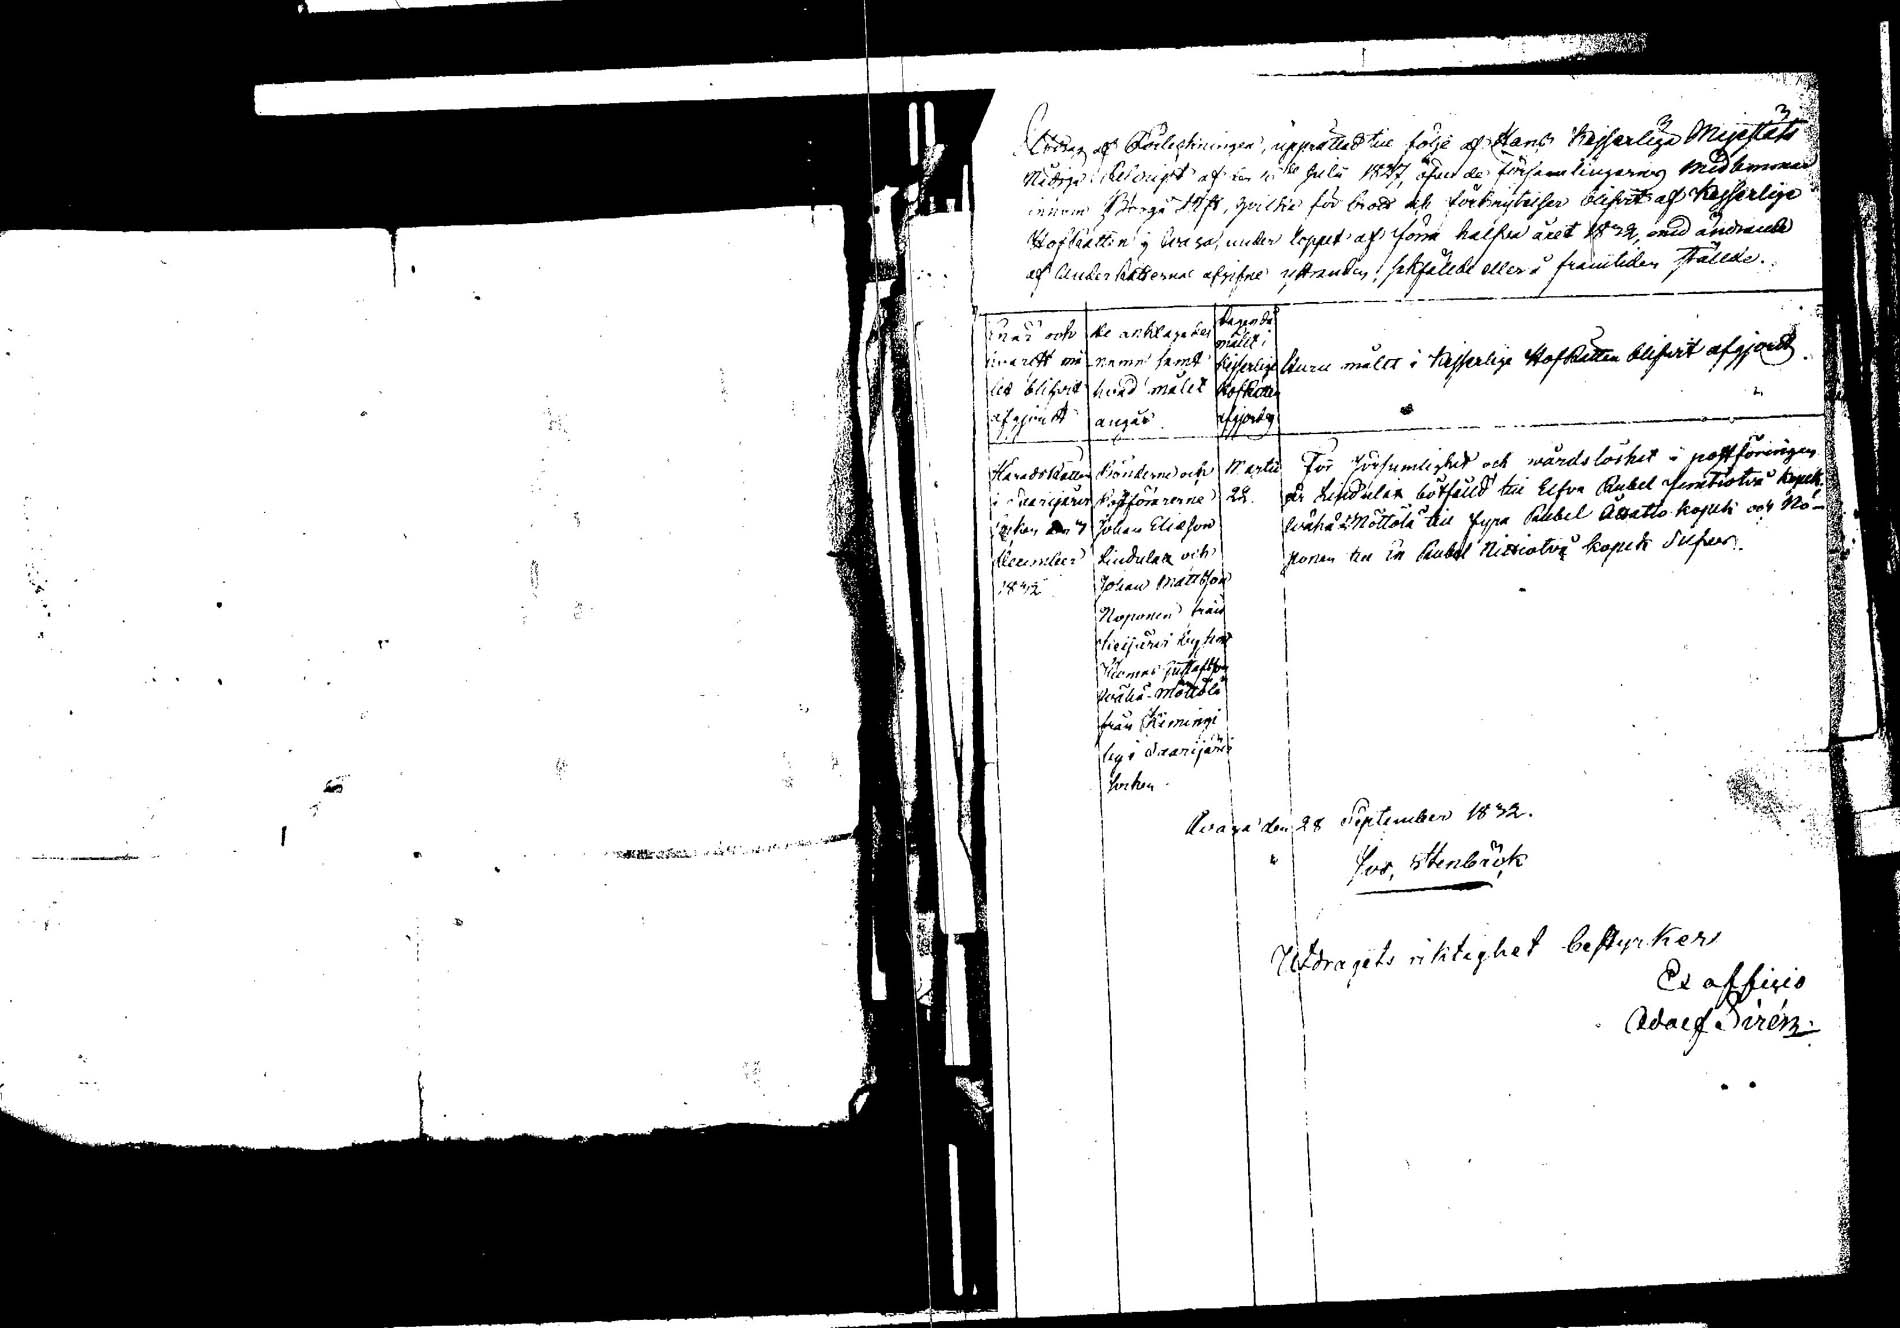 Utdrag af Förtekningen, upprättad till följe af Hans Kejserliga Majestäts
Nådiga Rescript af den Juli 1827, öfver de församlingarnes medlemmar
innom Borgå Stift, hvilka för brott och förbrytelser blifvit af Kejserlige
HofRätten i Wasa, under loppet af förra halfva året 1832, med ändrande
af UnderRätterna afgifne utslag, sakfälde eller å framtiden stälde.
När och
hvarest må
let blifvit
afgjordt
De anklagades
namn samt
hvad målet
angår.
Dagen då
målet i
Kejserlige
HofRätten
afgjordes
Huru målet i Kejserlige HofRätten blifvit afgjordt.
HäradsRätten
i Saarijärvi
Socken den 7
December
1832
Bönderne och
Postförarerne
Johan Eliasson
Lindula och
Johan Mattsson
Noponen från
by samt
Thomas Gustafsson
Wähä-Möttölä
från Kimingi
by i Saarijärvi
Socken.
Martii
22.
För försumlighet och wårdslöshet i postföringen
är Lindula bötfälld till Elfva Rubel femtiotvå kopek
Wähä-Möttölä till fyra Rubel Åttatio kopek och No-
ponen till En Rubel Nittiotvå kopek Silfver.
Wasa den 28 September 1832.
Jos. Stenbäck
Utdragets riktighet bestyrker
Ex officio
Adolf Sirén.